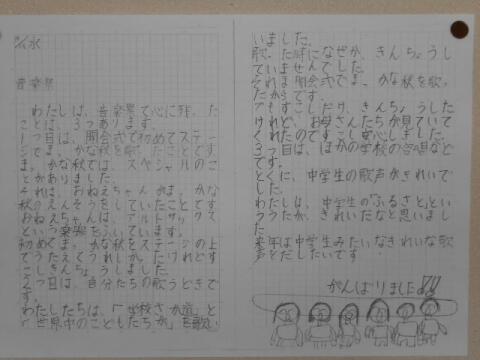 音楽祭
わたしは、音楽祭で心に残った
ことは、3つあります。
1つ目は、開会式で初めてステー
ジでま、かな秋を歌ったことです
ま、かな秋では、スペシャルのこ
とがありました
それは、おねえちゃんがま、かな
秋のえんそうをしていたことです
おねえちゃんは、アルトサックス
という楽器をふいています。
初めてま、かな秋をステージの上
でうたえてうれしかったけれどす
こしきんちょうしました。
2つ目は、自分たちの歌うときで
す。
わたしたちは、「学校さか道」と
「世界中のこどもたちが」を歌い
いました。
歌った時になぜか、きんちょうし
ていませんでした
それは開会式でま、かな秋を歌っ
たからです。
でもすこしだけ、きんちょうした
けれど、お母さんたちが見ていて
くれたのですこし安心しました。
3つ目は、ほかの学校の合唱など
です。
とくに、中学生の歌声がきれいで
した。
わたしは、中学生の「ふるさと」とい
ううたが、きれいだなと思いまし
た
来年は中学生みたいなきれいな歌
声をだしたいです
がんばりましたよ!!